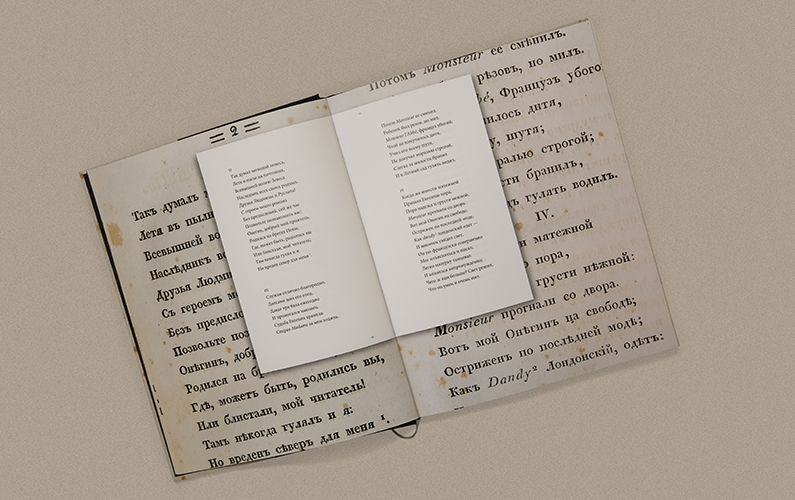 = 2 =
Такъ думалъ м
Летя въ пыли
Всевышней вол
Наслѣдникъ вс
Друзья Людми
Съ героемъ м
Безъ предисло
Позвольте поз
Онѣгинъ, доб
Родился на бр
Гдѣ, можетъ быть, родились вы,
Или блистали, мой читатель!
Тамъ нѣкогда гулялъ и я:
Но вреденъ сѣверъ для меня 1.
II
Так думал молодой повеса,
Летя в пыли на почтовых,
Всевышней волею Зевеса
Наследник всех своих родных.
Друзья Людмилы и Руслана!
С героем моего романа
Без предисловий, сей же час
Позвольте познакомить вас:
Онегин, добрый мой приятель,
Родился на брегах Невы,
Где, может быть, родились вы
Или блистали, мой читатель;
Там некогда гулял и я:
Но вреден север для меня¹.
III
Служив отлично-благородно,
Долгами жил его отец,
Давал три бала ежегодно
И промотался наконец.
Судьба Евгения хранила:
Сперва Madame за ним ходила,
Потом Monsieur ее сменил.
Ребенок был резов, но мил.
Monsieur l'Abbé, француз убогой,
Чтоб не измучилось дитя,
Учил его всему шутя,
Не докучал моралью строгой,
Слегка за шалости бранил
И в Летний сад гулять водил.
IV
Когда же юности мятежной
Пришла Евгению пора,
Пора надежд и грусти нежной,
Monsieur прогнали со двора.
Вот мой Онегин на свободе;
Острижен по последней моде,
Как dandy² лондонский одет —
И наконец увидел свет.
Он по-французски совершенно
Мог изъясняться и писал;
Легко мазурку танцевал
И кланялся непринужденно;
Чего ж вам больше? Свет решил,
Что он умен и очень мил.
Потомъ Monsieur ее смѣнилъ.
рѣзовъ, но милъ.
bé, Французъ убого
илось дитя,
у, шутя;
ралью строгой;
сти бранилъ,
дъ гулять водилъ.
IV.
и мятежной
пора,
грусти нѣжной:
Monsieur прогнали со двора.
Вотъ мой Онѣгинъ на свободѣ;
Остриженъ по послѣдней модѣ;
Какъ Dandy 2 Лондонскій, одѣтъ: